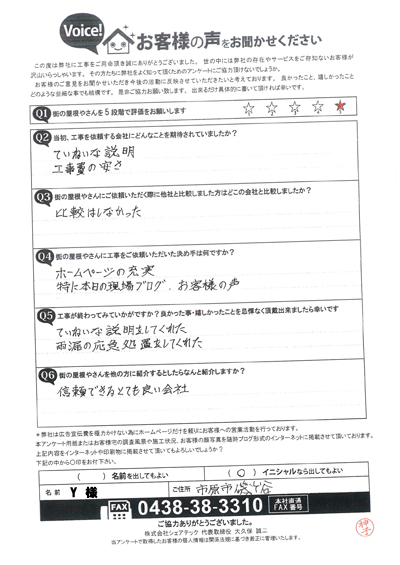 Voice! お客様の声をお聞かせください
この度は弊社に工事をご用命頂き誠にありがとうございました。世の中には弊社の存在やサービスをご存知ないお客様が
沢山いらっしゃいます。その方たちに弊社をよく知って頂くためのアンケートにご協力頂けないでしょうか。
お客様のご意見をお聞かせいただき今後の活動に反映させていただきたいと考えております。良かったこと、嬉しかったこと
どのような些細な事でも結構です。是非ご協力お願い致します。出来るだけ具体的に書いて頂ければ幸いです。
Q1 街の屋根やさんを5段階で評価をお願いします ☆ ☆ ☆ ☆ ★
Q2 当初、工事を依頼する会社にどんなことを期待されていましたか?
ていねいな説明
工事費の安さ
Q3 街の屋根やさんにご依頼いただく際に他社と比較しました方はどこの会社と比較しましたか?
比較はしなかった
Q4 街の屋根やさんに工事をご依頼いただいた決め手は何ですか?
ホームページの充実
特に本日の現場ブログ、お客様の声
Q5 工事が終わってみていかがですか?良かった事・嬉しかったことを忌憚なく頂戴出来ましたら幸いです
ていねいな説明をしてくれた
雨漏の応急処置をしてくれた
Q6 街の屋根やさんを他の方に紹介するとしたらなんと紹介しますか?
信頼できるとても良い会社
*弊社は広告宣伝費を極力かけない為にホームページだけを頼りにお客様への営業活動を行っております。
本アンケート用紙またはお客様宅の調査風景や施工状況、お客様の顔写真を随時ブログ形式のインターネットに掲載させて頂いております。
上記内容をインターネットや印刷物に掲載させて頂いてもよろしいでしょうか?
下記の中から〇印をお付下さい。
( ) 名前を出してもよい (〇) イニシャルなら出してもよい
名前 Y 様 ご住所 市原市
FAX 0438-38-3310 本社直通 FAX番号
ご協力ありがとうございました。
株式会社シェアテック 代表取締役 大久保 誠二
当アンケートで取得したお客様の個人情報は関係法規に基づき厳正に管理いたします。